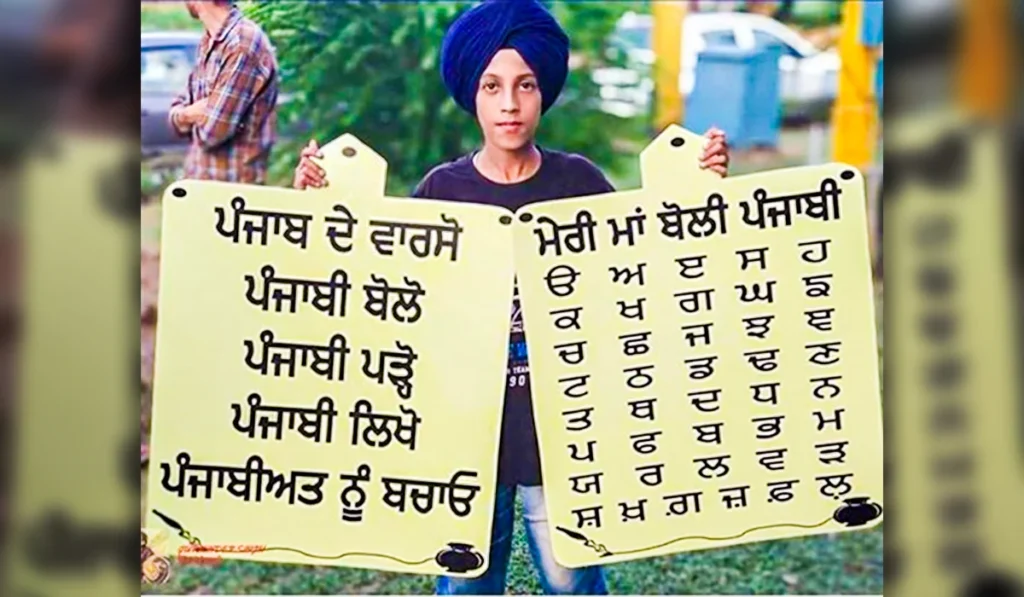 ਪੰਜਾਬ ਦੇ ਵਾਰਸੋ
ਪੰਜਾਬੀ ਬੋਲੋ
ਪੰਜਾਬੀ ਪੜ੍ਹੋ
ਪੰਜਾਬੀ ਲਿਖੋ
ਪੰਜਾਬੀਅਤ ਨੂੰ ਬਚਾਓ
ਮੇਰੀ ਮਾਂ ਬੋਲੀ ਪੰਜਾਬੀ
ੳ ਅ ੲ ਸ ਹ
ਕ ਖ ਗ ਘ ਙ
ਚ ਛ ਜ ਝ ਞ
ਟ ਠ ਡ ਢ ਣ
ਤ ਥ ਦ ਧ ਨ
ਪ ਫ ਬ ਭ ਮ
ਯ ਰ ਲ ਵ ੜ
ਸ਼ ਖ਼ ਗ਼ ਜ਼ ਫ਼ ਲ਼
TEAM
90